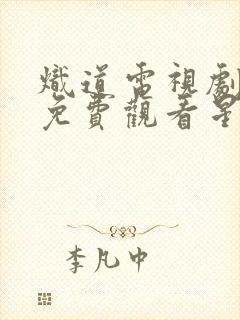 熾道電視劇
免費觀看星
李凡中